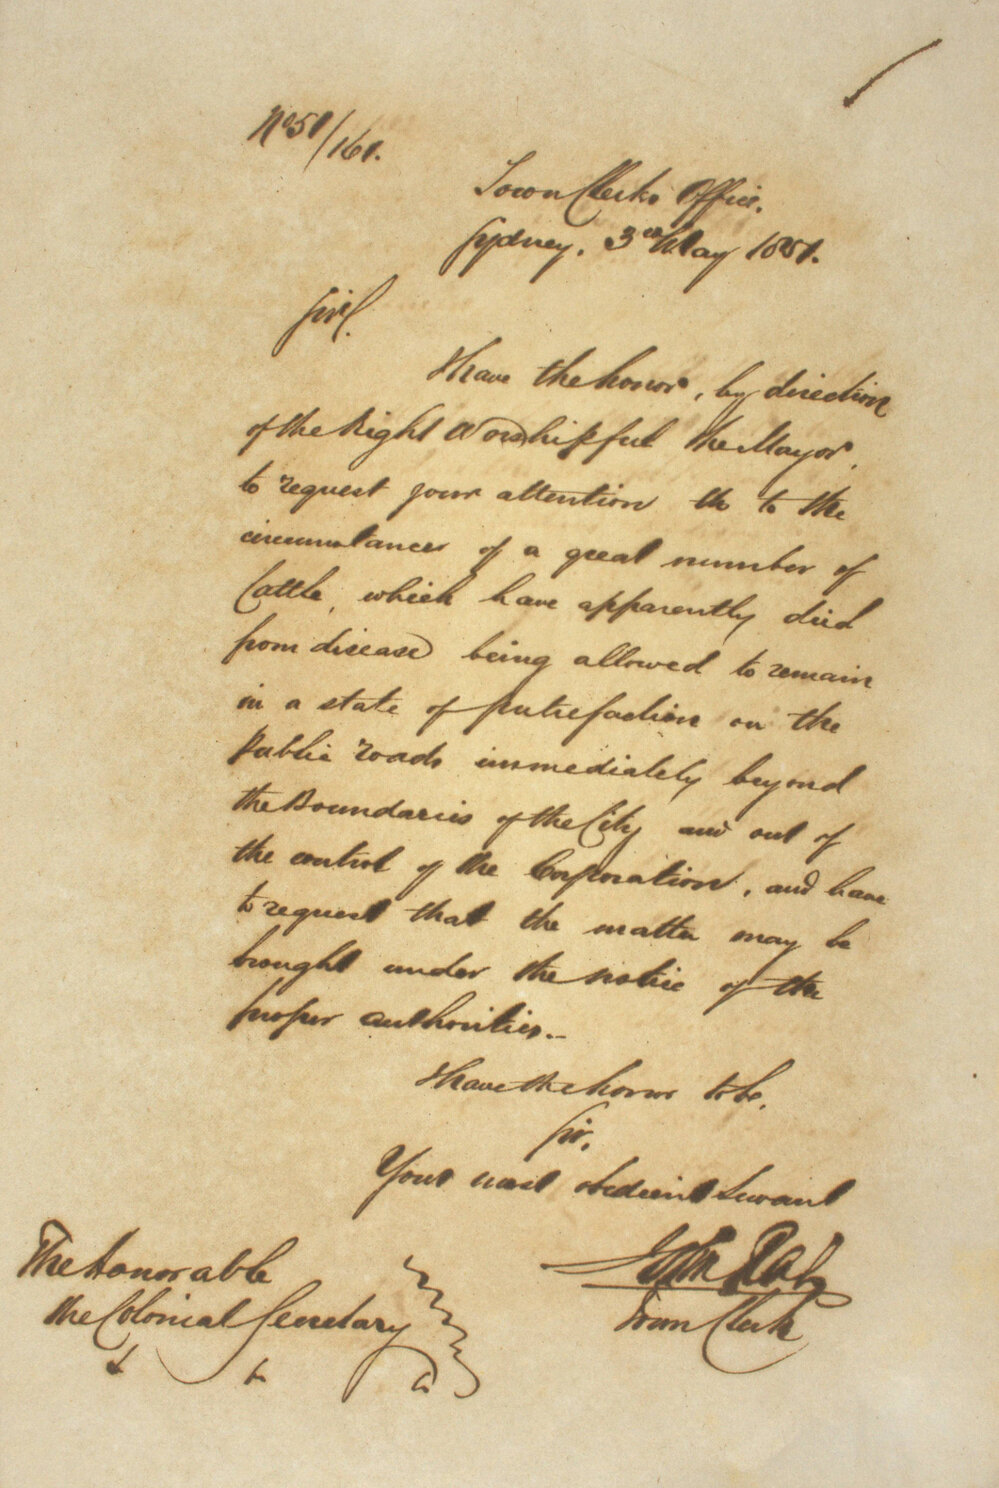 No 51/161.
Town Clerks Office.
Sydney, 3rd May 1851.
Sir,
I have the honor, by direction
of the Right Worshipful the Mayor,
to request your attention th to the
circumstances of a great number of
Cattle, which have apparently died
from disease being allowed to remain
in a state of putrefaction on the
Public roads immediately beyond
the Boundaries of the City and out of
the control of the Corporation, and have
to request that the matter may be
brought under the notice of the
proper authorities.
I have the honor to be,
Sir,
Your most obedient Servant
John
Town Clerk
The Honorable
the Colonial Secretary